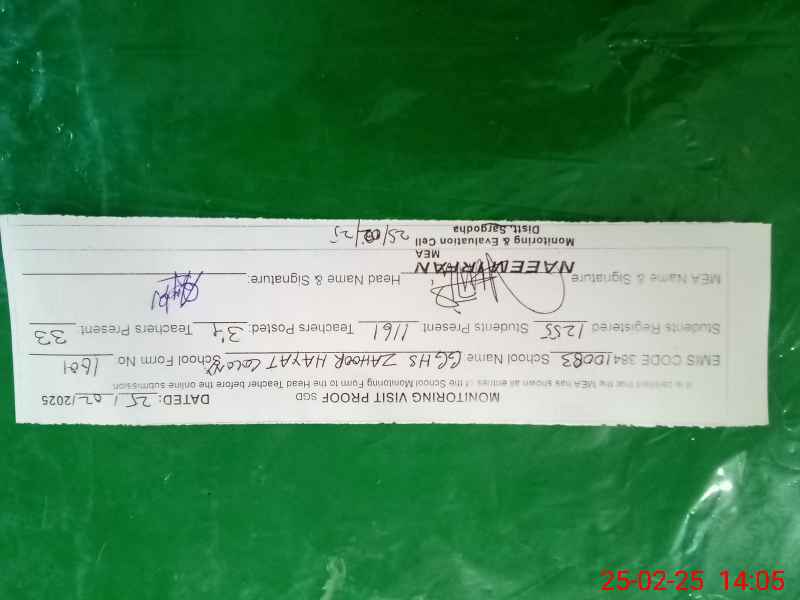 MONITORING VISIT PROOF SGD DATED: 25 / 02 /2025
It is certified that the MEA has shown all entries of the School Monitoring Form to the Head Teacher before the online submission
EMIS CODE 38410083 School Name GGHS ZAHOOR HAYAT COLONY School Form No 1601
Students Registered 1255 Students Present: 1161 Teachers Posted: 34 Teachers Present: 33
MEA Name & Signature Head Name & Signature:
NAEEM IRFAN
MEA
Monitoring & Evaluation Cell
Distt. Sargodha
25/02/25
25-02-25 14:05